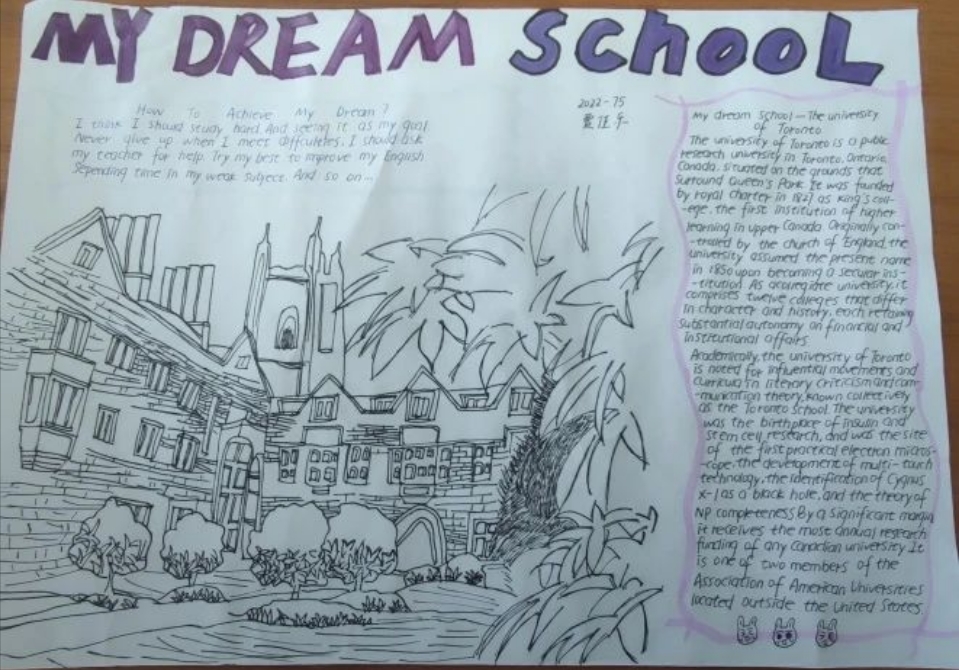 MY DREAM SCHOOL
How To Achieve My Dream?
I think I shoud study hard. And seeing it as my goal.
Never give up when I meet difficulties. I should ask
my teacher for help. Try my best to improve my English
Spending time in my weak subject. And so on...
2022-75
My dream school — The university
of Toronto
The university of Toronto is a public
research university in Toronto. Ontario.
Canada. situated on the grounds that
Surround Queen's Park It was founded
by royal charter in 1827 as King's coll-
-ege. the first institution of higher
learning in upper Canada. Originally con-
-trolled by the church of England. the
university assumed the present name
in 1850 upon becoming a secular ins-
-titution As a collegiate university, it
comprises twelve colleges that differ
in character and history, each retaining
substantial autonomy on financial and
institutional affairs.
Academically, the university of Toronto
is noted for influential movements and
curricula in literary criticism and com-
-munication theory, known collectively
as the Toronto School. The university
was the birthplace of insulin and
stem cell research, and was the site
of the first practical electron micros-
-cope. the development of multi-touch
technology, the identification of Cygnus
X-1 as a black hole, and the theory of
NP completeness By a significant margin
it receives the most annual research
funding of any Canadian university It
is one of two members of the
Association of American Universities
located outside the United States